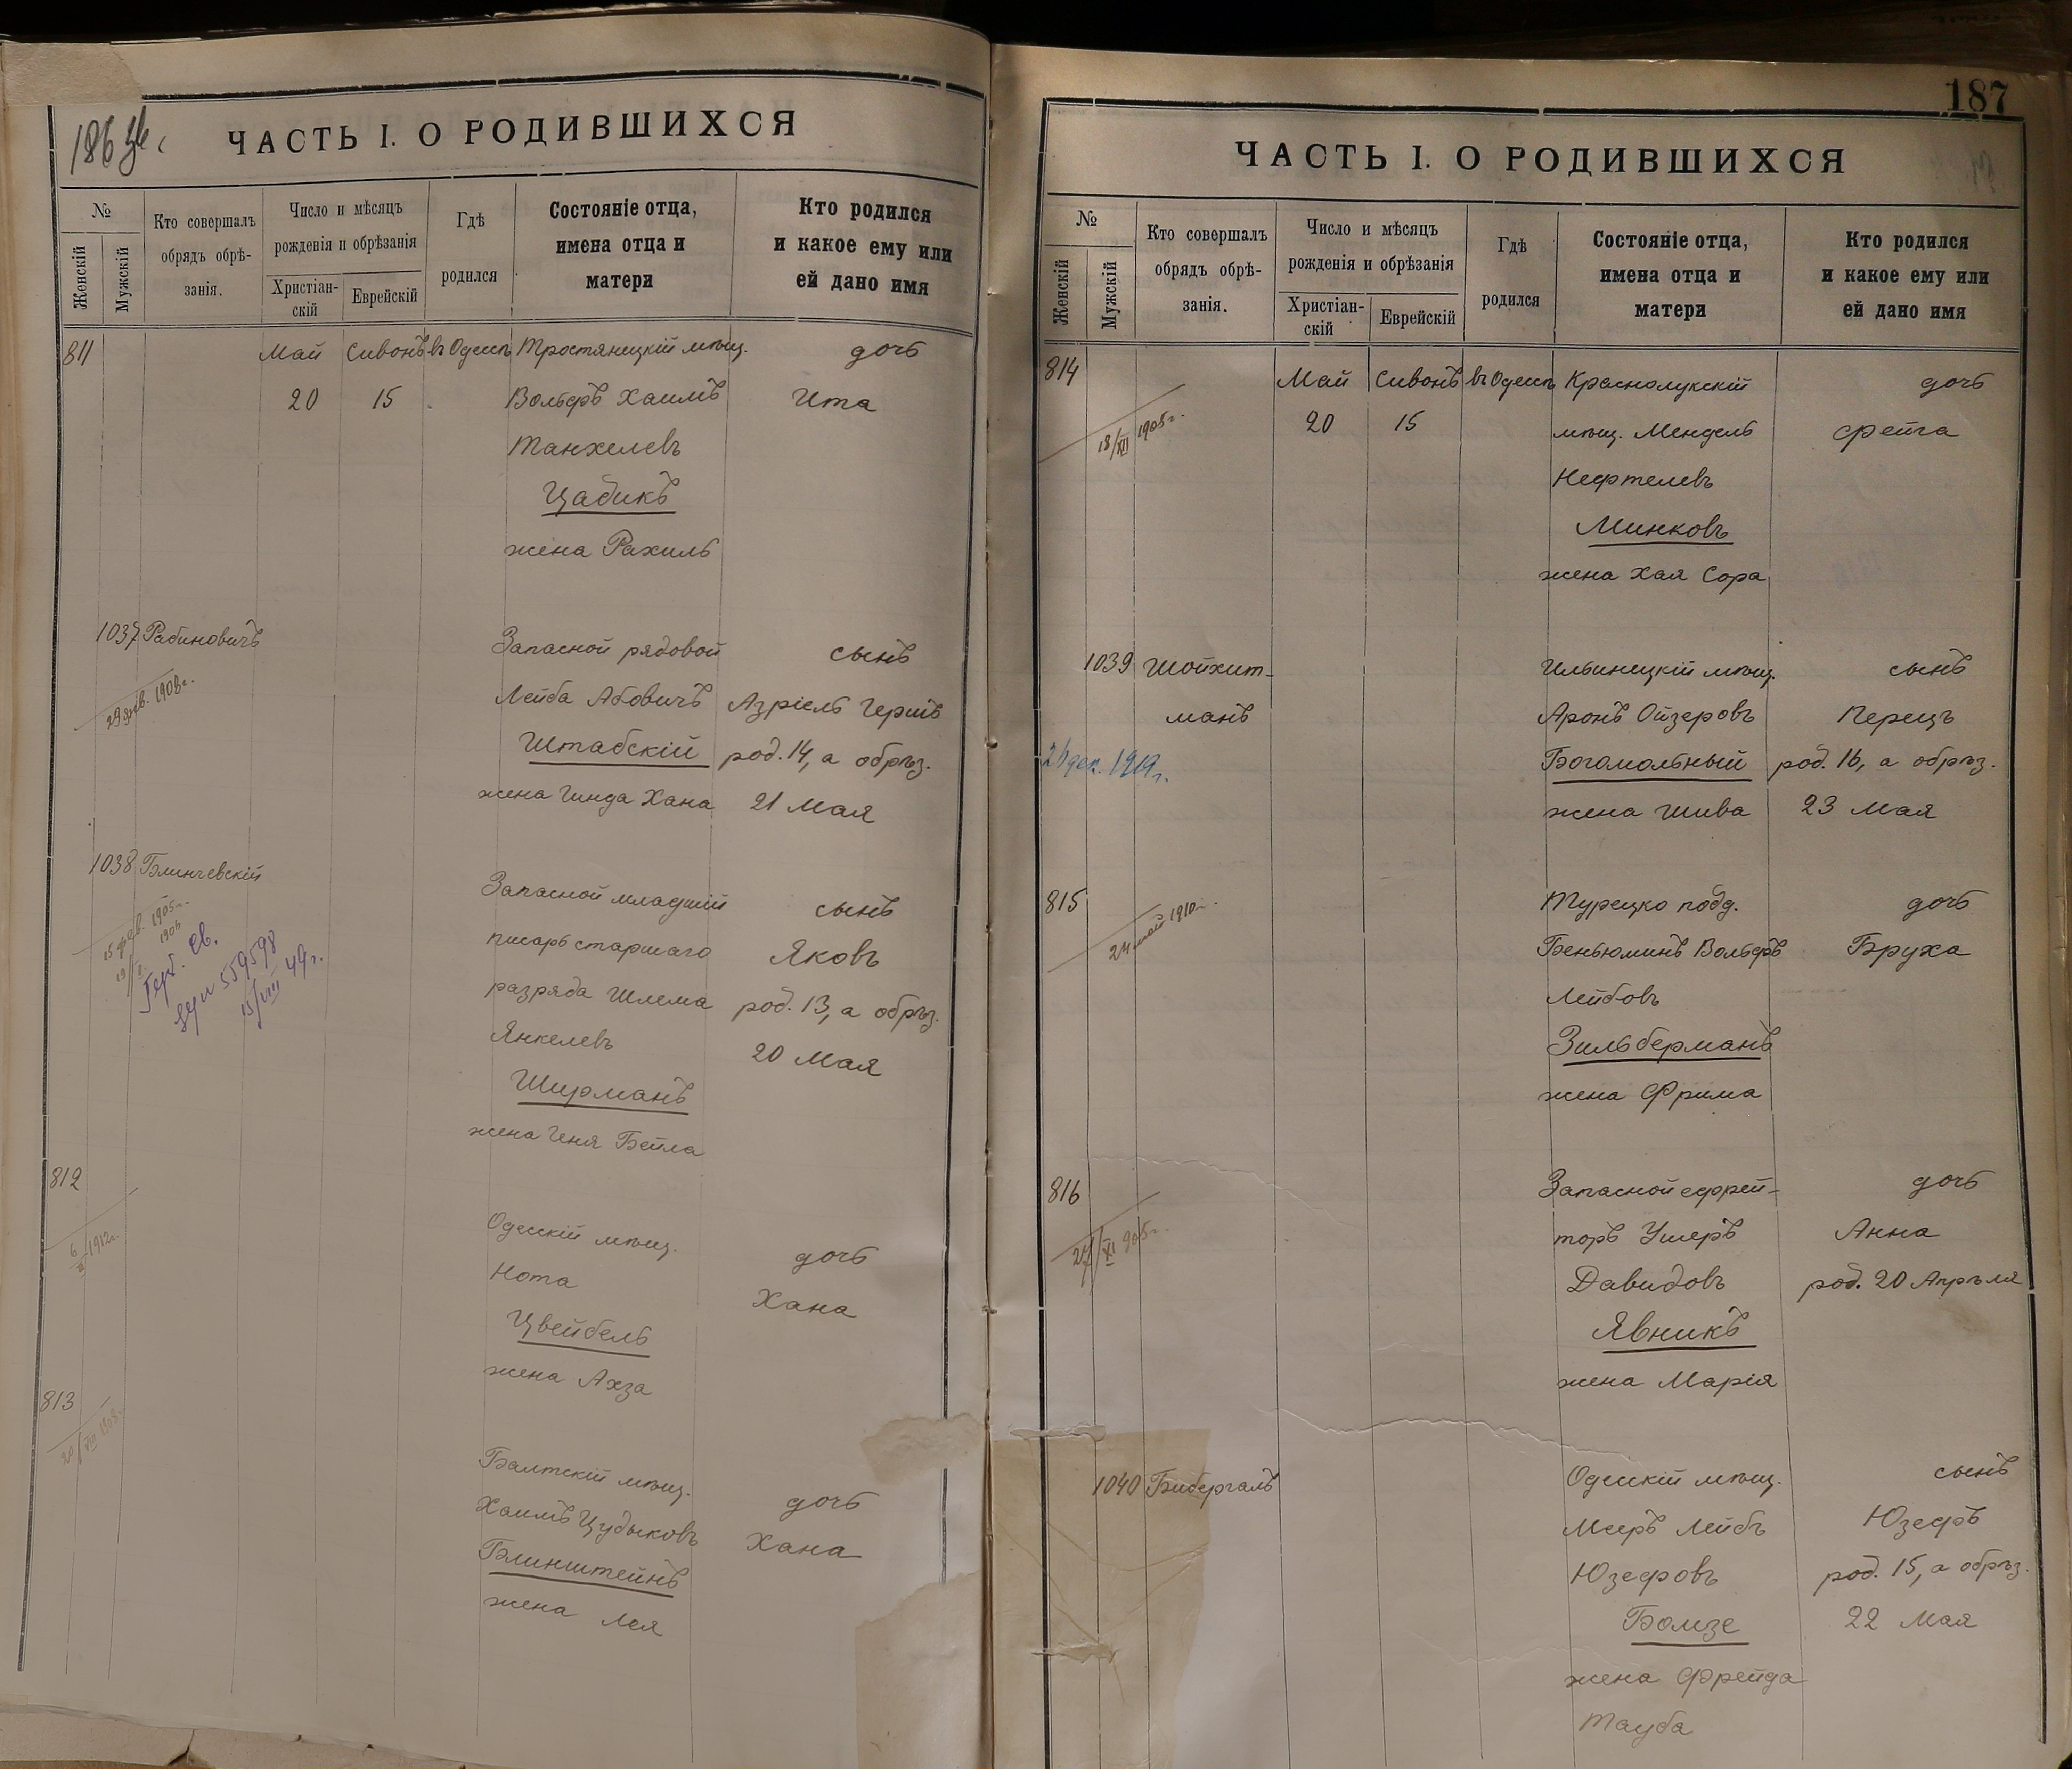 186 об.
ЧАСТЬ I. О РОДИВШИХСЯ
№
Женскій
Мужскій
Кто совершалъ
обрядъ обрѣ-
занія.
Число и мѣсяцъ
рожденія и обрѣзанія
Христіан-
скій
Еврейскій
Гдѣ
родился
Состояніе отца,
имена отца и
матери
Кто родился
и какое ему или
ей дано имя
811 Май Сивонъ въ Одессѣ Тростянецкій мѣщ. дочь
20 15 Вольфъ Хаимъ Ита
Танхелевъ
Цабикъ
жена Рахиль
1037 Рабиновичъ Запасной рядовой сынъ
29 янв. 1908 г. Лейба Абовичъ Азріель Гершъ
Штабскій род. 14, а обрѣз.
жена Гинда Хана 21 Мая
1038 Блинчевскій Запасной младшій сынъ
писарь старшаго Яковъ
разряда Шлема род. 13, а обрѣз.
Янкелевъ 20 Мая
Ширманъ
жена Геня Бейла
15 фев. 1905 г.
1906
Герб. св.
559598
15/VIII 49 г.
812 Одесскій мѣщ. дочь
1912 г. Нота Хана
Цвейбель
жена Ахза
813 Балтскій мѣщ. дочь
20/VIII 1908 г. Хаимъ Цудыковъ Хана
Блинштейнъ
жена Лея
187
ЧАСТЬ I. О РОДИВШИХСЯ
№
Женскій
Мужскій
Кто совершалъ
обрядъ обрѣ-
занія.
Число и мѣсяцъ
рожденія и обрѣзанія
Христіан-
скій
Еврейскій
Гдѣ
родился
Состояніе отца,
имена отца и
матери
Кто родился
и какое ему или
ей дано имя
814 Май Сивонъ въ Одессѣ Краснолукскій дочь
18/XII 1905 г. 20 15 мѣщ. Мендель Фейга
Нефтелевъ
Минковъ
жена Хая Сора
1039 Шойхит- Ильинецкій мѣщ. сынъ
манъ Аронъ Ойзеровъ Перецъ
26 дек. 1919 г. Богомольный род. 16, а обрѣз.
жена Шива 23 Мая
815 Турецко подд. дочь
24 май 1910 г. Беньюминъ Вольфъ Бруха
Лейбовъ
Зильберманъ
жена Фрима
816 Запасной ефрей- дочь
27/XI 905 г. торъ Ушеръ Анна
Давидовъ род. 20 Апрѣля
Явникъ
жена Марія
1040 Бибергалъ Одесскій мѣщ. сынъ
Мееръ Лейбъ Юзефъ
Юзефовъ род. 15, а обрѣз.
Бомзе 22 Мая
жена Фрейда
Тауба